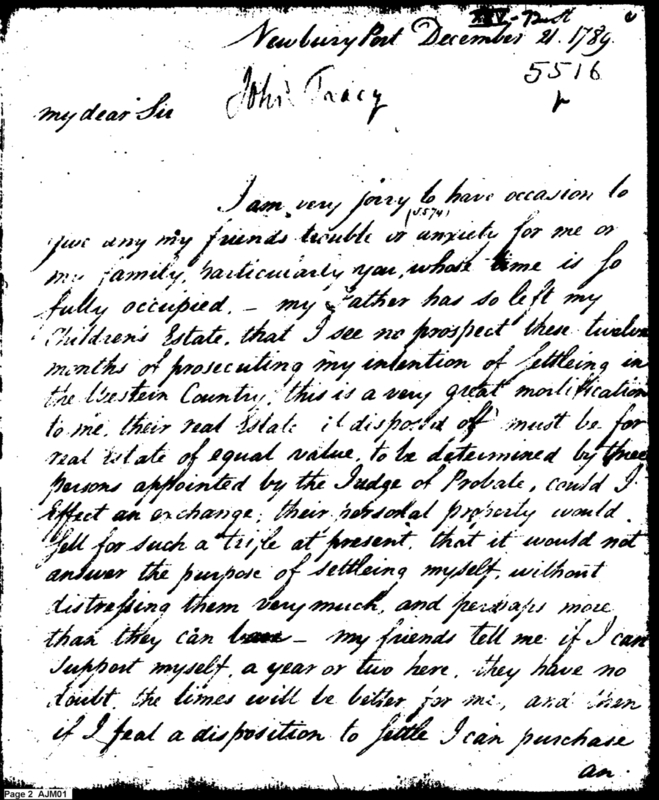 Newbury Port December 21. 1789.
5516
John Tracy
my dear Sir
I am very sorry to have occasion to
give any my friends trouble or anxiety for me or
my family, particularly you, whose time is so
fully occupied. – my Father has so left my
Children's Estate, that I see no prospect these twelve
months of prosecuting my intention of settleing in
the Western Country, this is a very great mortification
to me, their real Estate if disposed off must be for
real Estate of equal value, to be determined by three
persons appointed by the Judge of Probate, could I
effect an exchange, their personal property would
sell for such a trifle at present, that it would not
answer the purpose of settleing myself, without
distressing them very much, and perhaps more
than they can – my friends tell me if I can
support myself, a year or two here, they have no
doubt, the times will be better for me, and then
if I feal a disposition to settle I can purchase
an
Page 2 AJM01